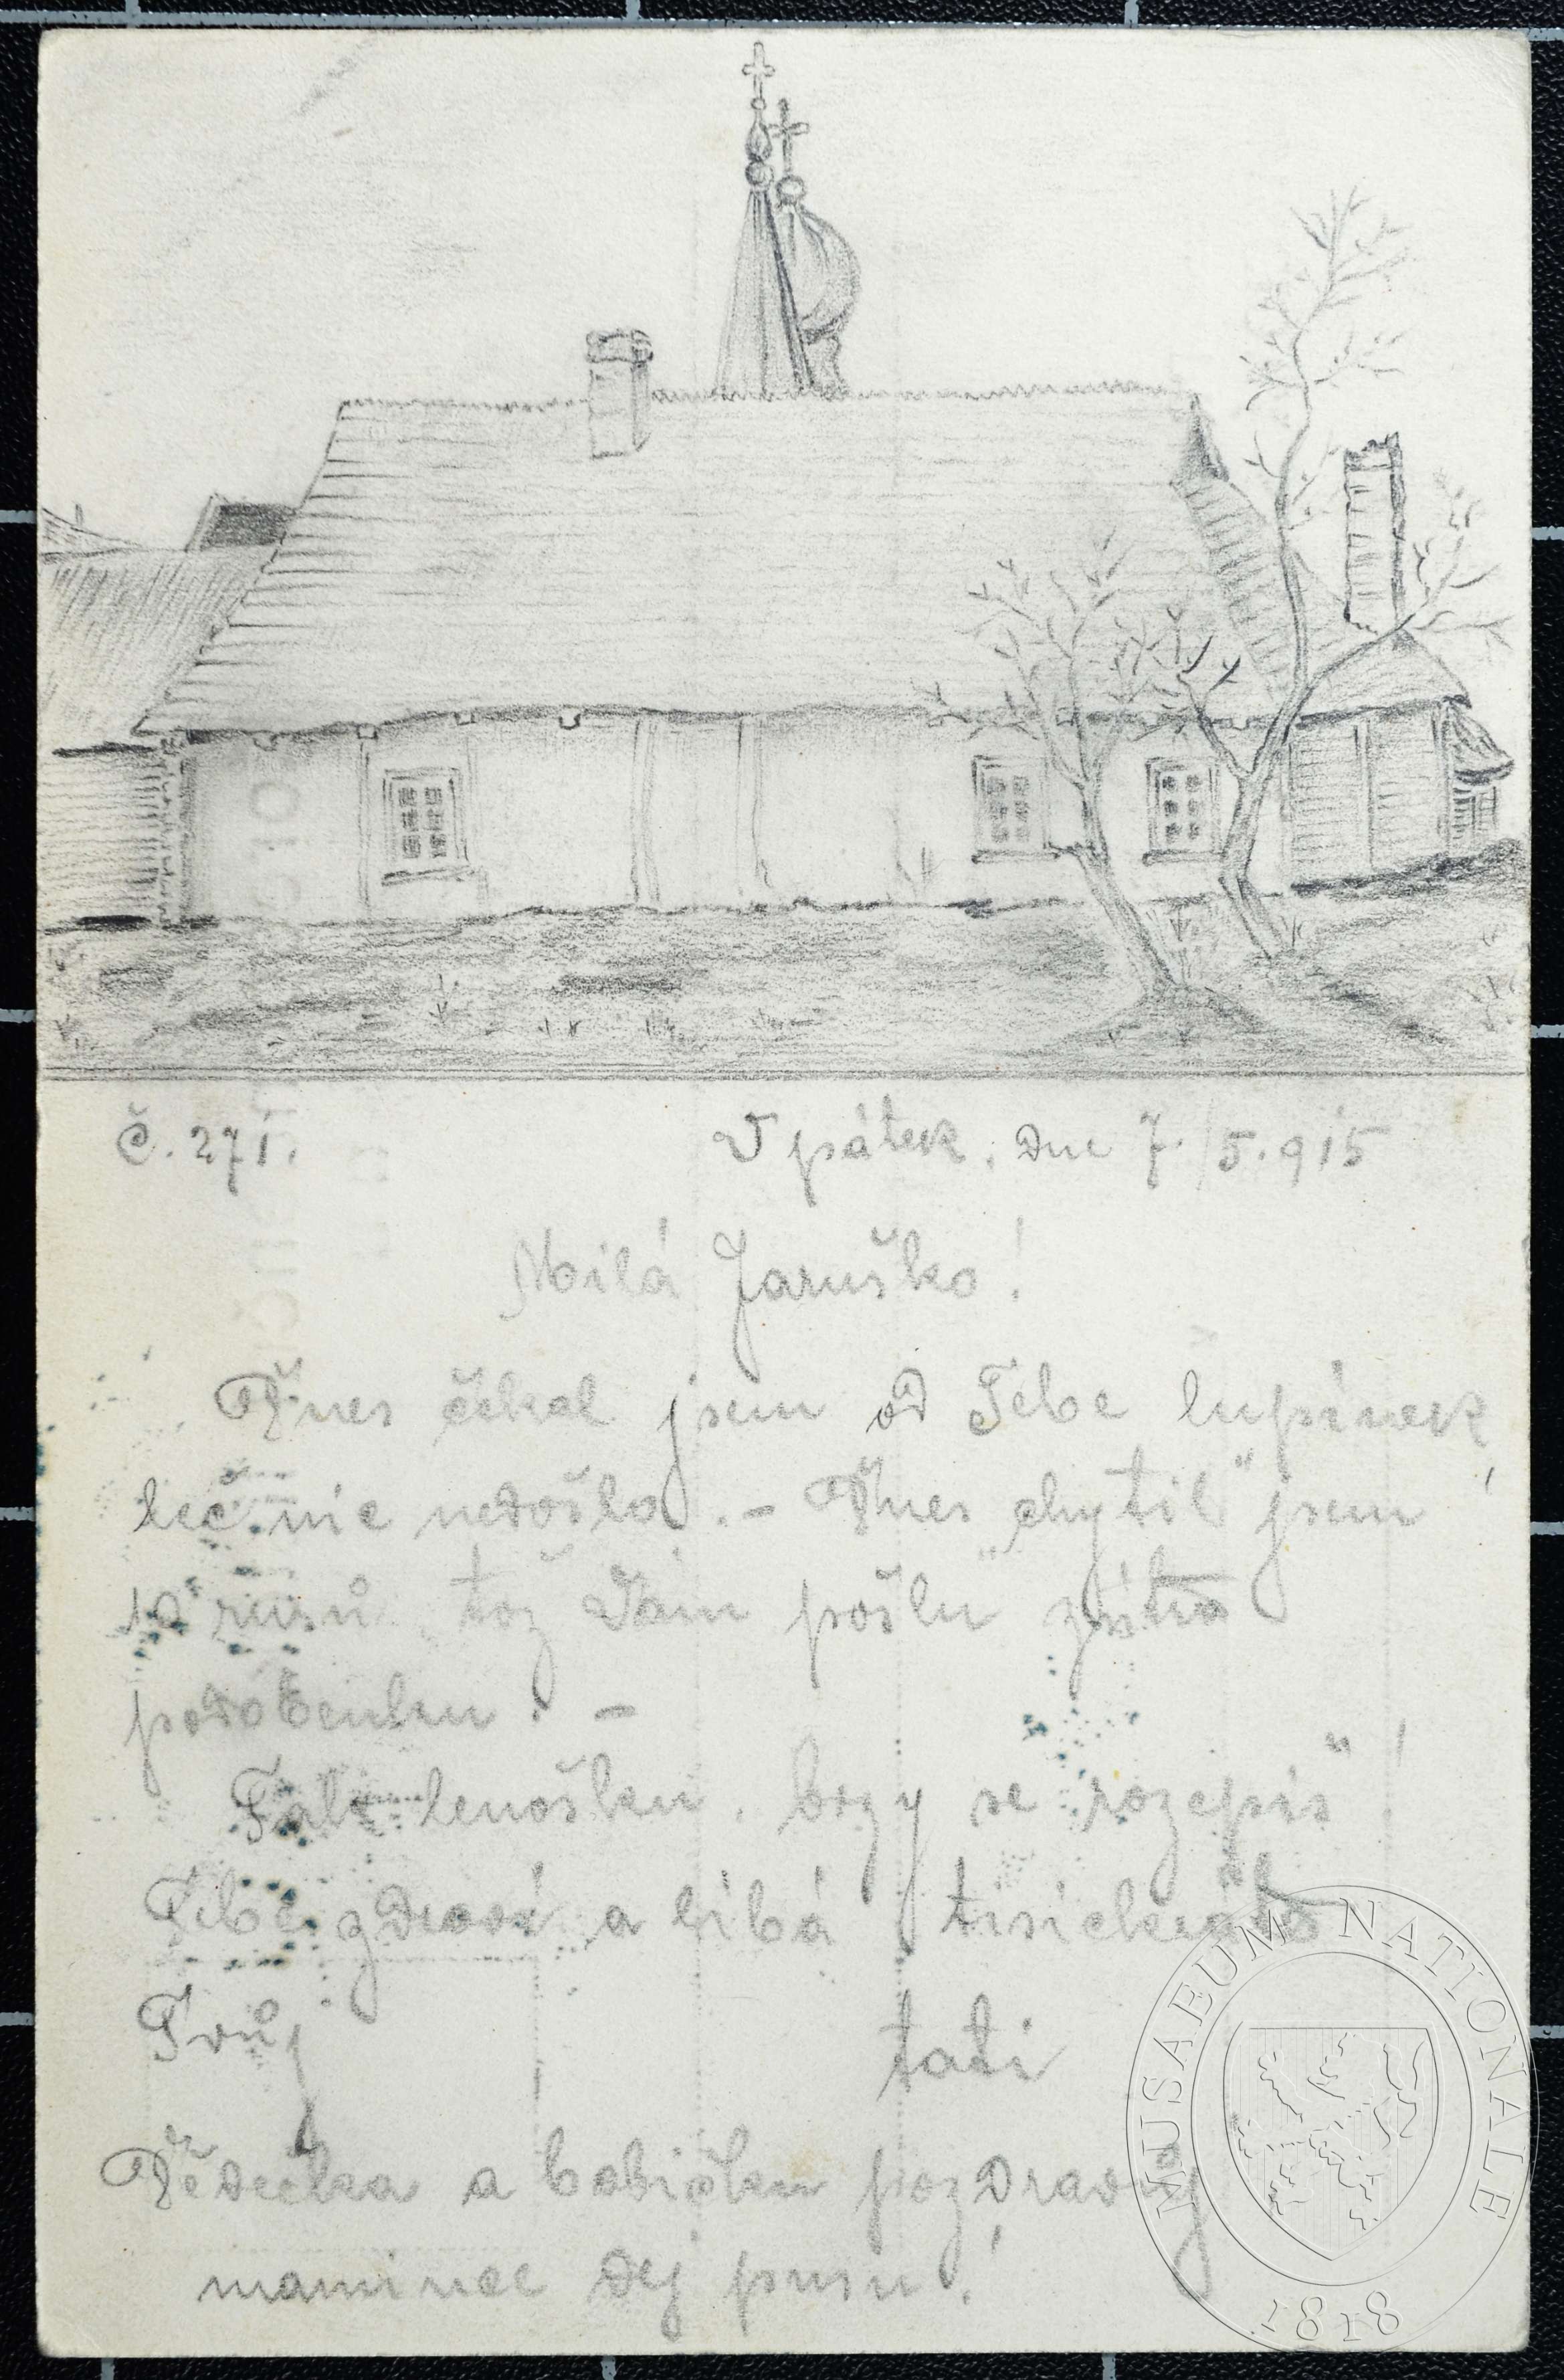 č. 271. V pátek, dne 7./5. 915
Milá Jaruško!
Dnes čekal jsem od Tebe lupínek,
leč nic nedošlo. - Dnes „chytil" jsem
10 rusů „tož Vám pošlu" zítra
podobenku. -
Tak lenošku, brzy se rozepiš"!
Tebe zdraví a líbá tisíckrát
Tvůj tati
Dědečka a babičku pozdravuj
mamince dej pusu!
MUSAEUM NATIONALE
1818